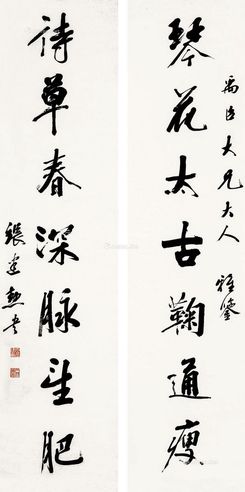 禹臣大兄大人雅鉴
琴花太古鞠通瘦
诗草春深脉望肥
張建勳書